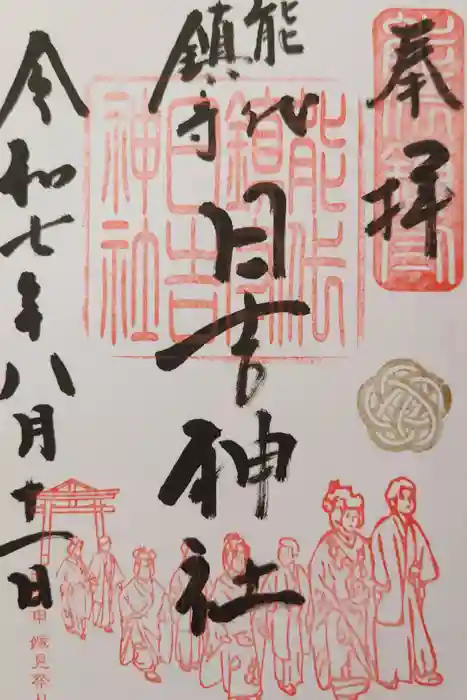 奉拝
能代
鎮守
日吉神社
令和七年八月十一日
能代
鎮守
日吉
神社
嫁見祭り